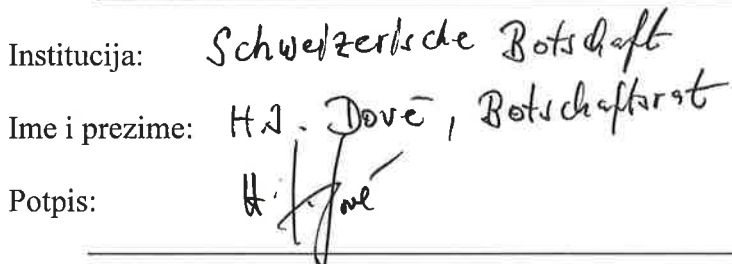 Institucija: Schweizerische Botschaft
Ime i prezime: H.J. Dové, Botschaftsrat
Potpis: H.J. Dové